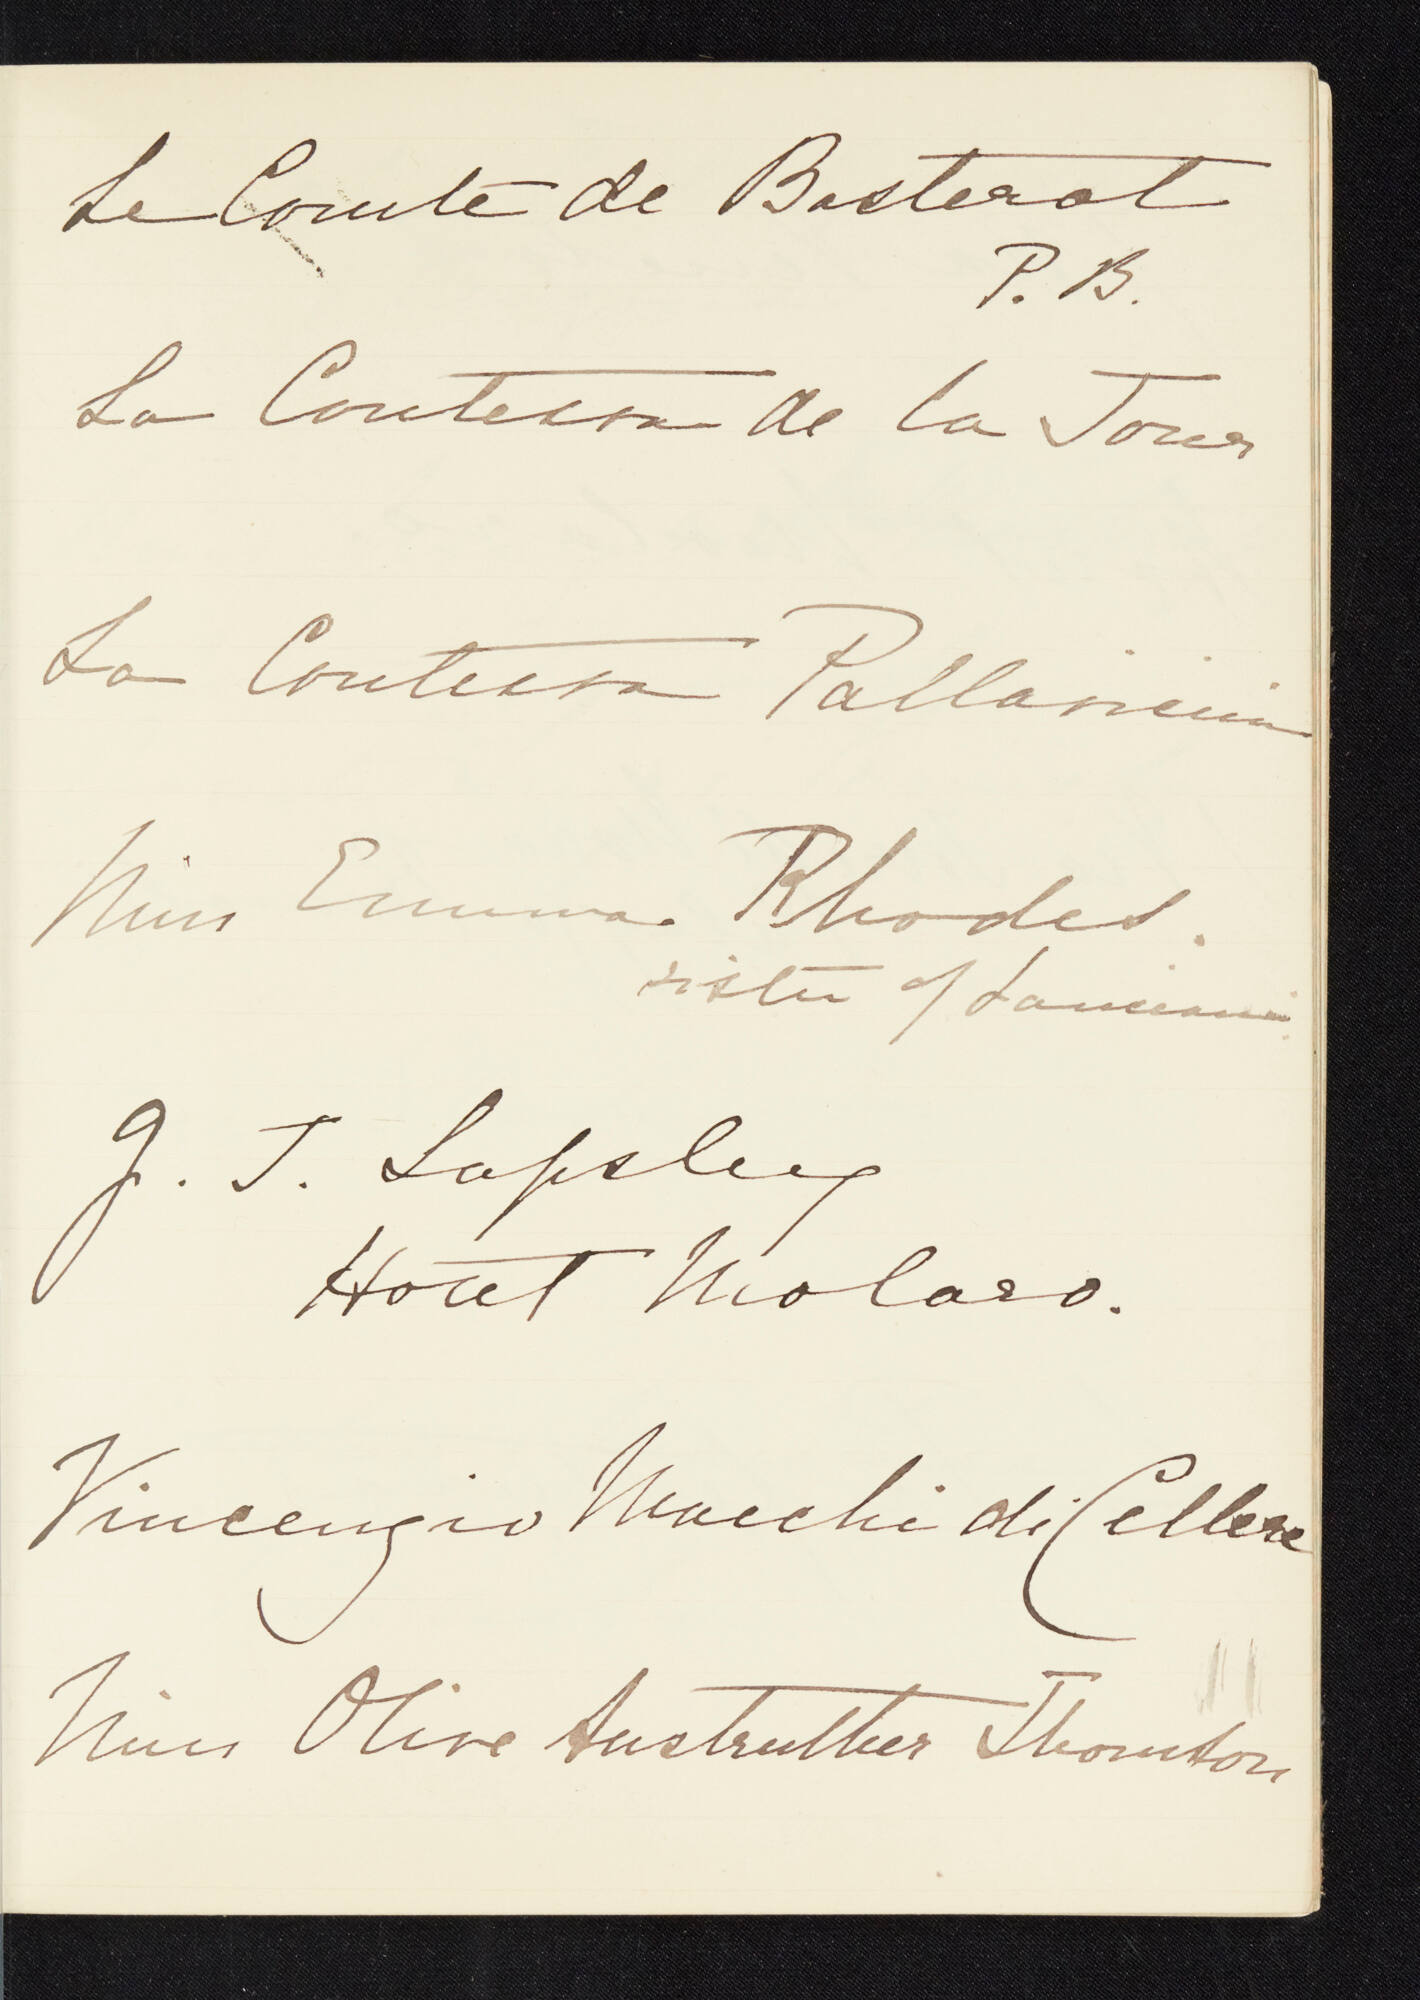 Le Comte de Basterot
P. B.
La Contessa de la Tour
La Contessa Pallavicini
Miss Emma Rhodes.
sister of Lanciani.
G. T. Lapsley
Hotel Molaro.
Vincenzio Macchi di Cellere
Miss Olive Anstruther Thomson